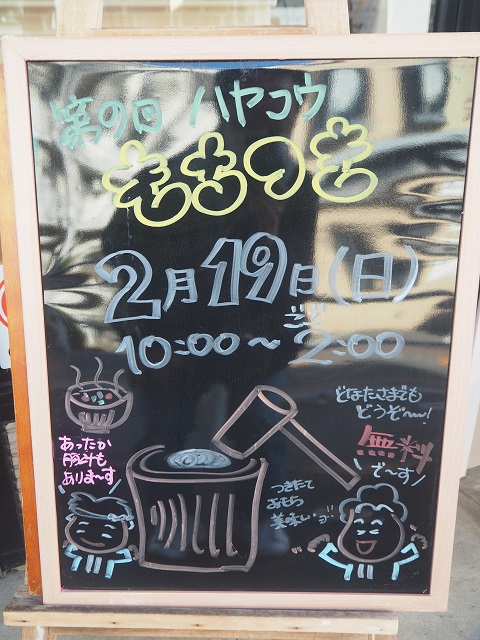 第9回 ハヤコウ
もちつき
2月19日(日)
10:00〜ごご2:00
どなたさまでも
どうぞ〜!
無料
で〜す
あったか
豚汁も
ありま〜す
つきたて
おもち
美味い〜ヨ!